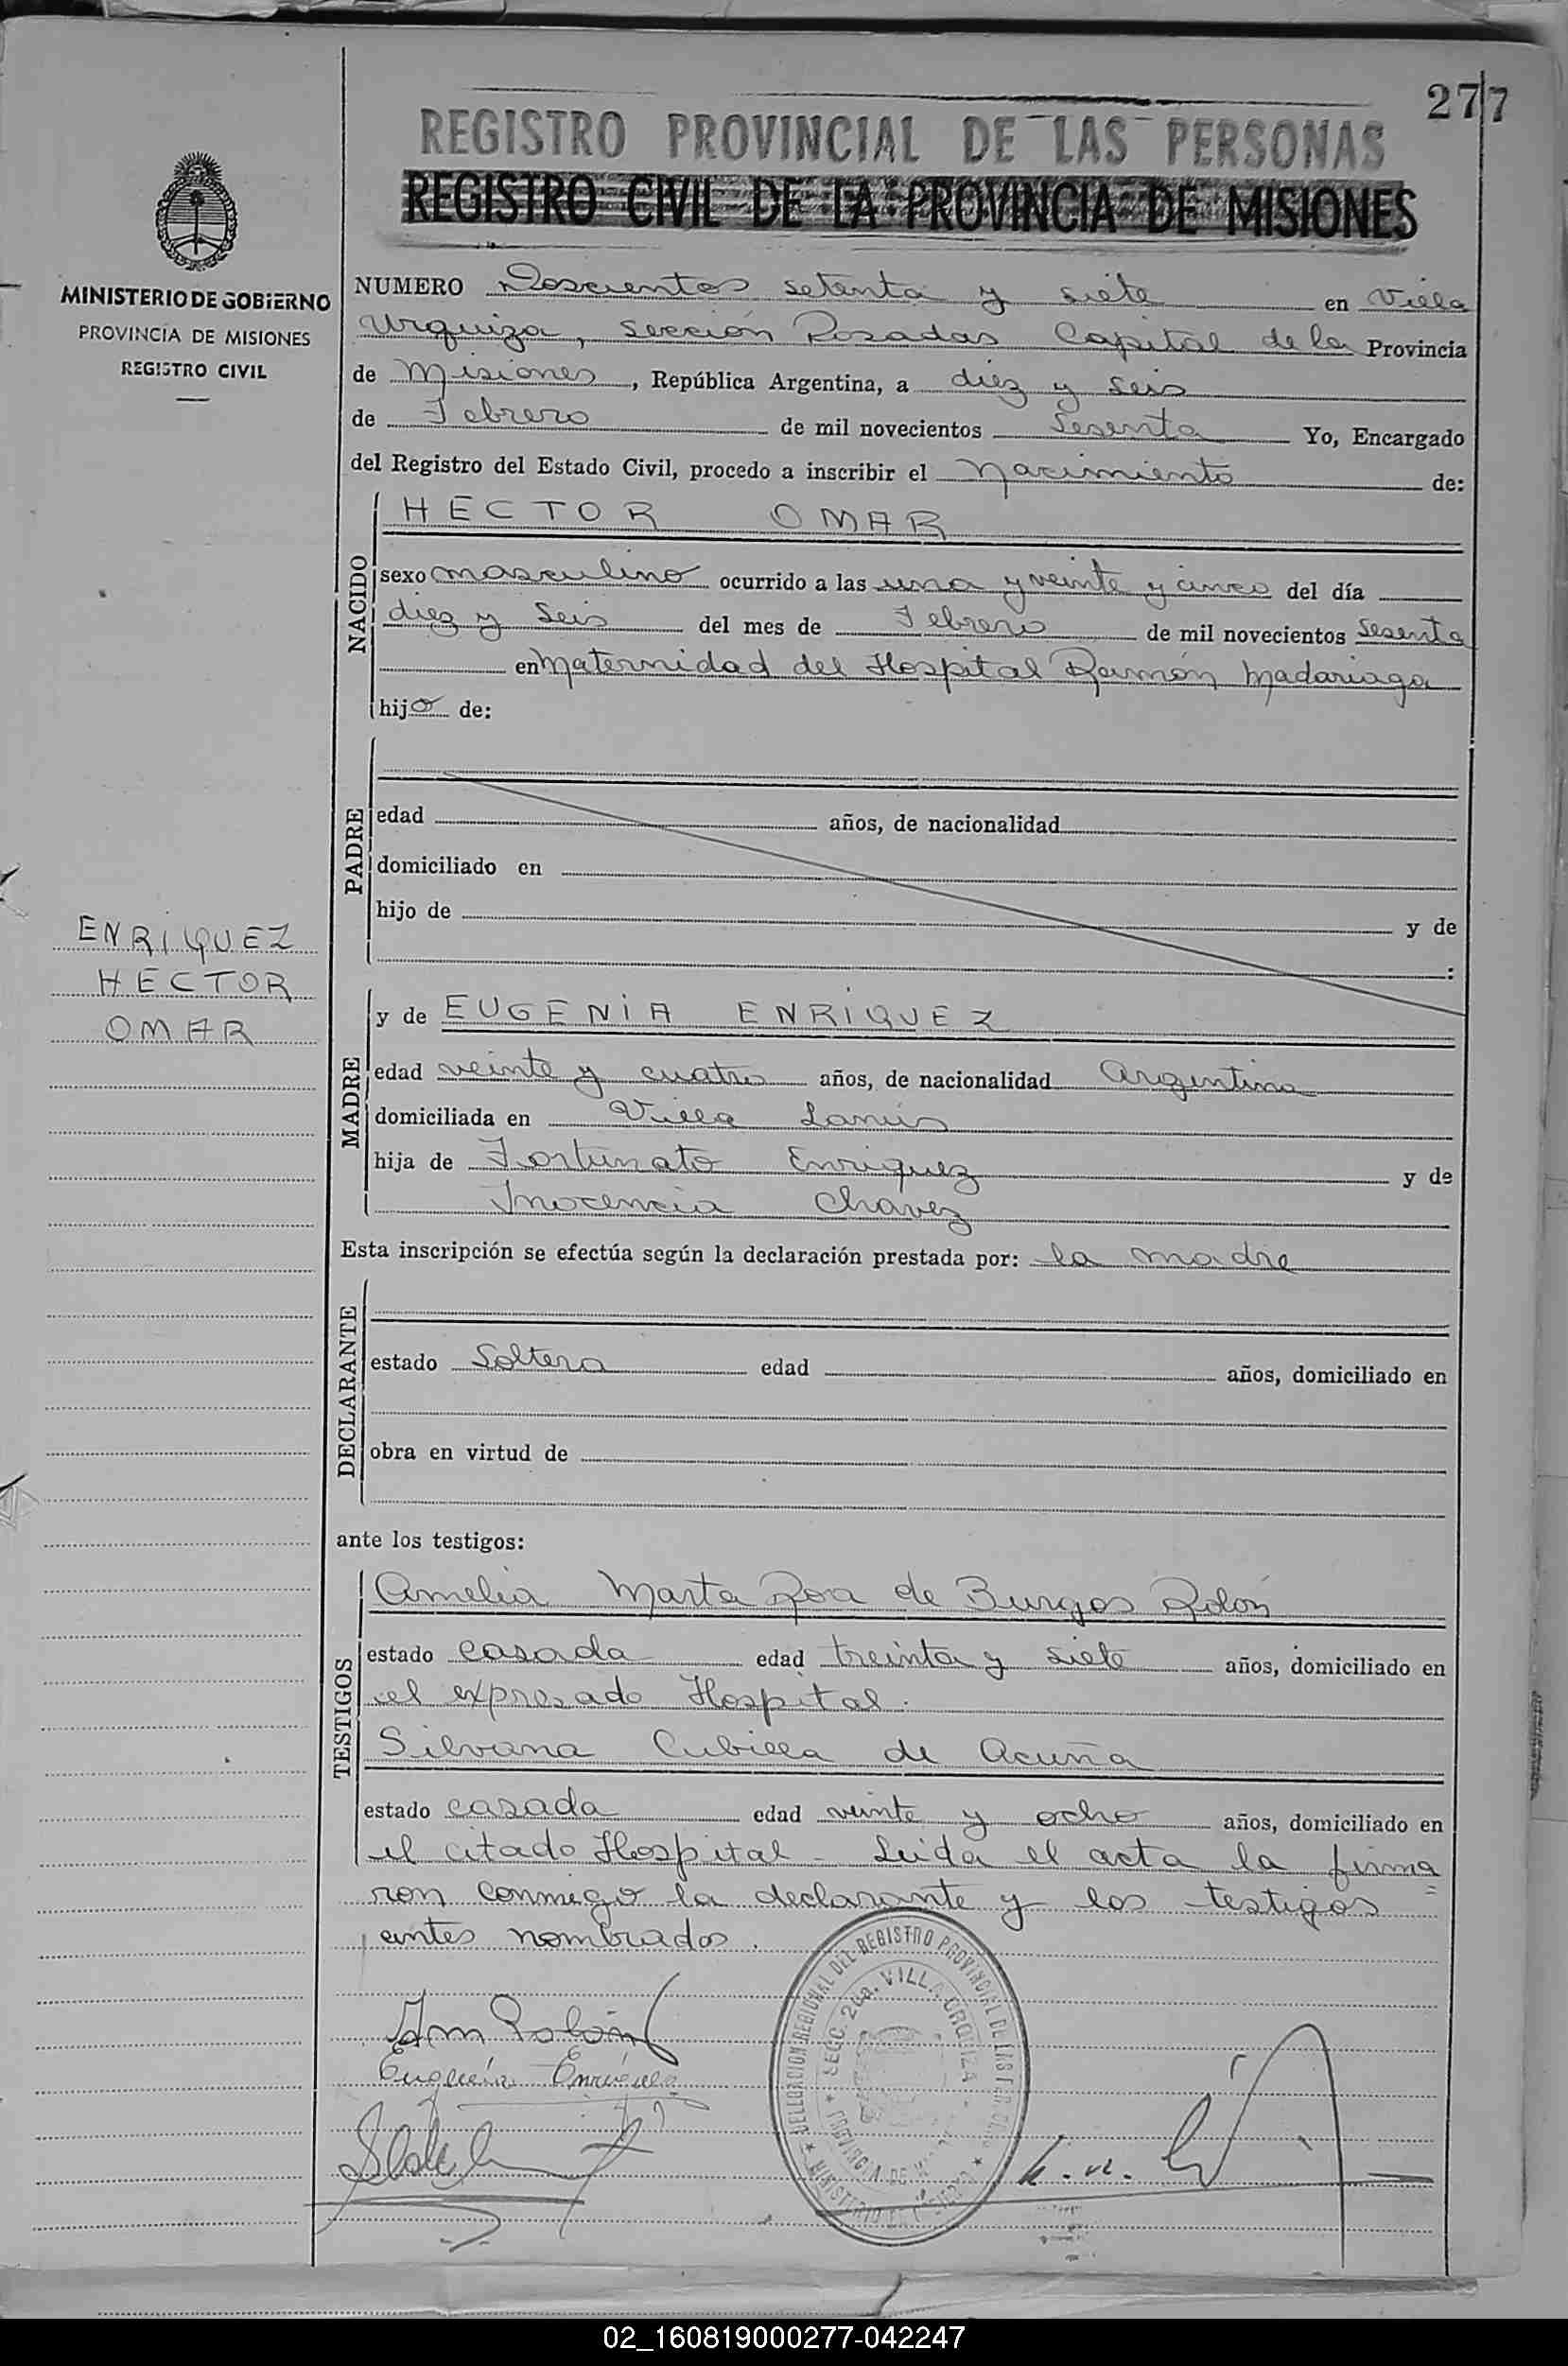 277
REGISTRO PROVINCIAL DE LAS PERSONAS
REGISTRO CIVIL DE LA PROVINCIA DE MISIONES
MINISTERIO DE GOBIERNO
PROVINCIA DE MISIONES
REGISTRO CIVIL
ENRIQUEZ
HECTOR
OMAR
NUMERO Doscientos setenta y siete en Villa
Urquiza, sección Posadas Capital de la Provincia
de Misiones, República Argentina, a diez y seis
de Febrero de mil novecientos Sesenta Yo, Encargado
del Registro del Estado Civil, procedo a inscribir el Nacimiento de:
NACIDO
HECTOR OMAR
sexo masculino ocurrido a las una y veinte y cinco del día
diez y seis del mes de Febrero de mil novecientos Sesenta
en Maternidad del Hospital Ramón Madariaga
hijo de:
PADRE
edad años, de nacionalidad
domiciliado en
hijo de y de
:
MADRE
y de EUGENIA ENRIQUEZ
edad veinte y cuatro años, de nacionalidad Argentina
domiciliada en Villa Lanús
hija de Fortunato Enriquez y de
Inocencia Chavez
Esta inscripción se efectúa según la declaración prestada por: la madre
DECLARANTE
estado Soltera edad años, domiciliado en
obra en virtud de
ante los testigos:
TESTIGOS
Amelia Marta Roa de Burgos Rolón
estado casada edad treinta y siete años, domiciliado en
el expresado Hospital.
Silvana Cubilla de Acuña
estado casada edad veinte y ocho años, domiciliado en
el citado Hospital - Leida el acta la firma=
ron conmigo la declarante y los testigos
antes nombrados.
Eugenia Enriquez
DELEGACION REGIONAL DEL REGISTRO PROVINCIAL DE LAS PERSONAS
SECC. 2da. VILLA URQUIZA
PROVINCIA DE
MINISTERIO DE GOBIERNO
02_160819000277-042247